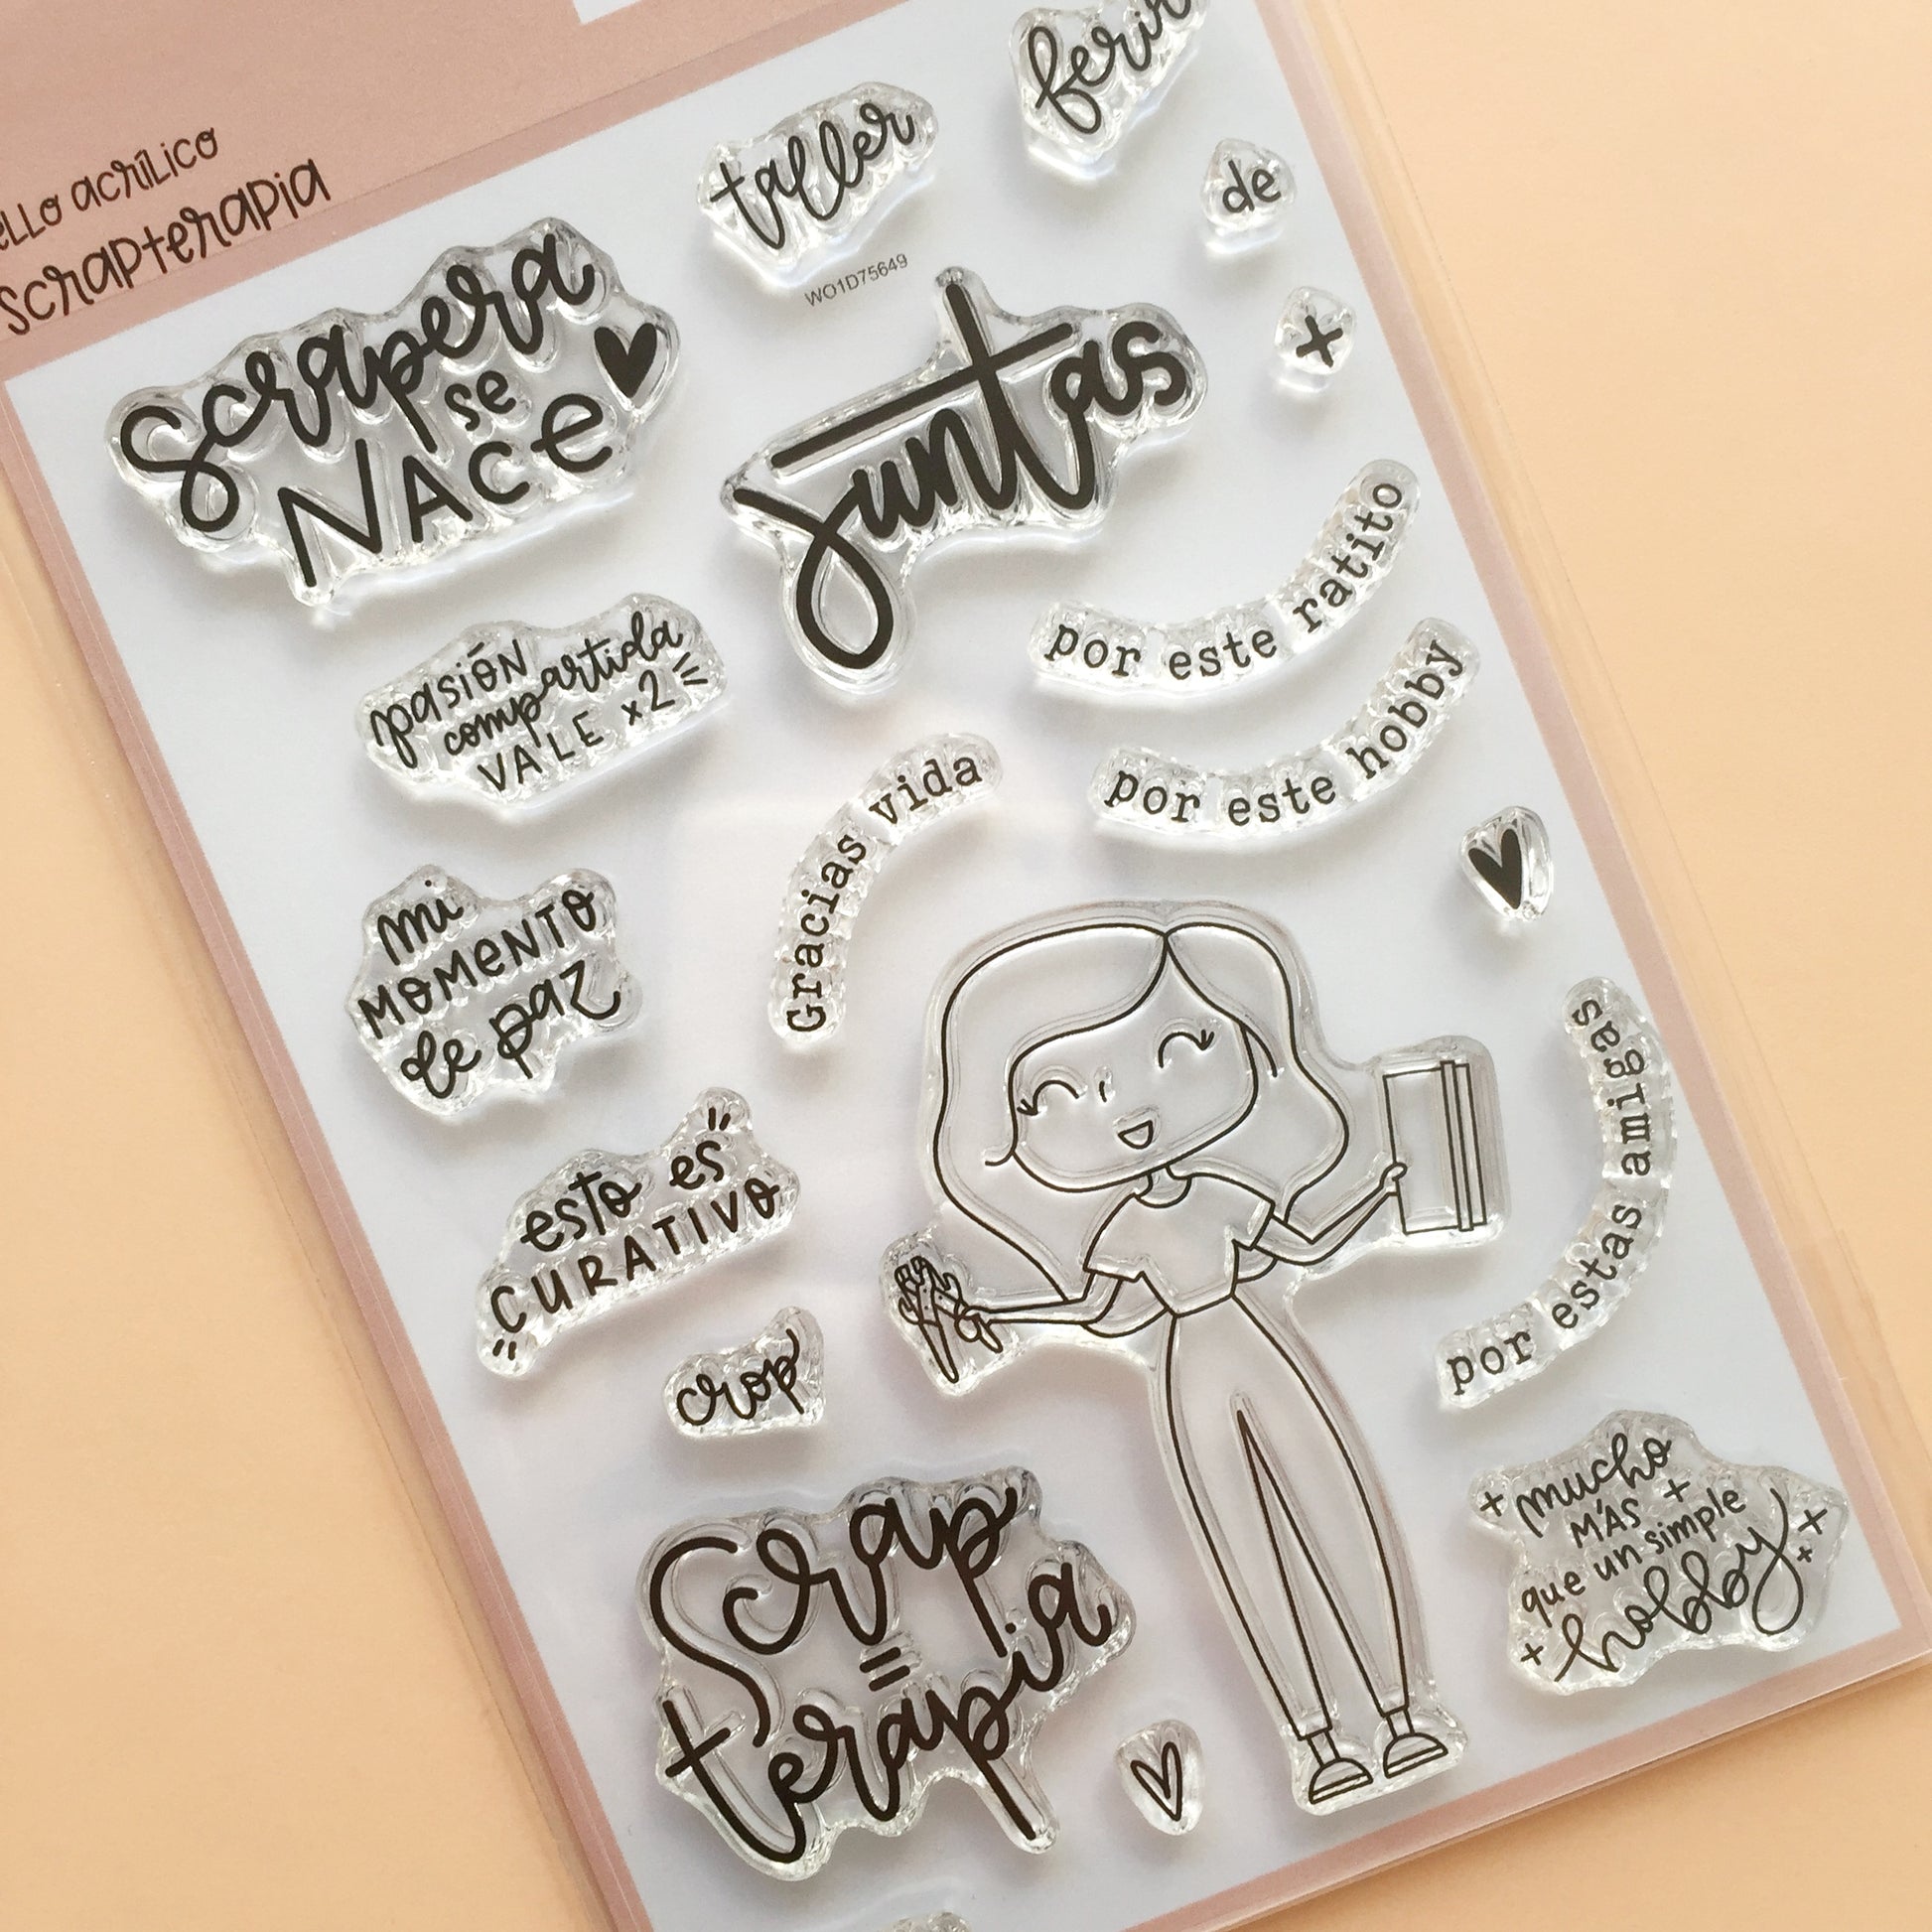 acrílico
scrapterapia
taller
de
+
WO1D75649
Scrapera
se
NACE
juntas
por este ratito
pasión
compartida
VALE x2
por este hobby
Gracias vida
mi
MOMENTO
de paz
esto es
CURATIVO
por estas amigas
crop
Scrap
=
terapia
mucho
MÁS
que un simple
hobby